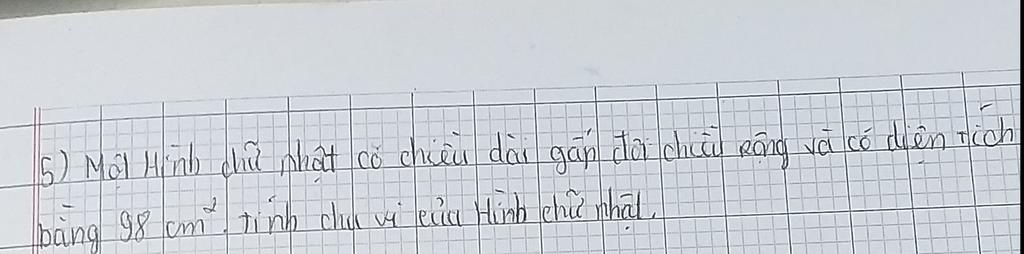 5) Một Hình chữ nhật có chiều dài gấp đôi chiều rộng và có diện tích
bằng 98 cm². tính chu vi của Hình chữ nhật.